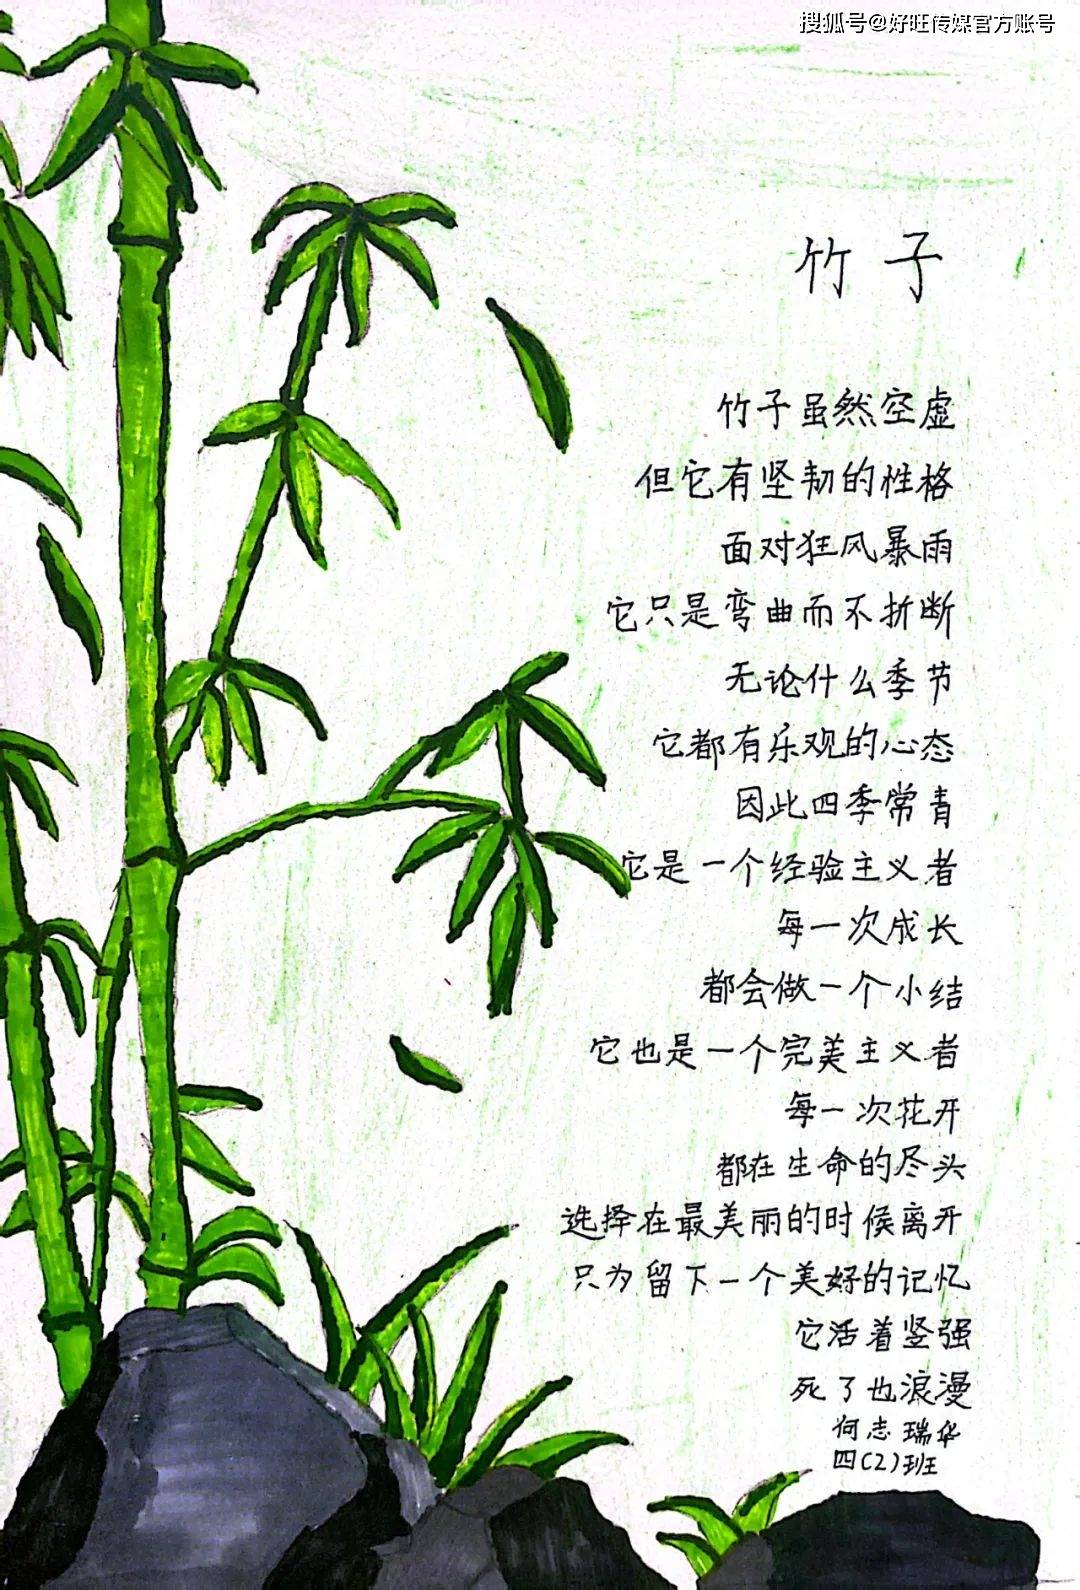 搜狐号@好旺传媒官方账号
竹子
竹子虽然空虚
但它有坚韧的性格
面对狂风暴雨
它只是弯曲而不折断
无论什么季节
它都有乐观的心态
因此四季常青
它是一个经验主义者
每一次成长
都会做一个小结
它也是一个完美主义者
每一次花开
都在生命的尽头
选择在最美丽的时候离开
只为留下一个美好的记忆
它活着坚强
死了也浪漫
何志瑞华
四(2)班